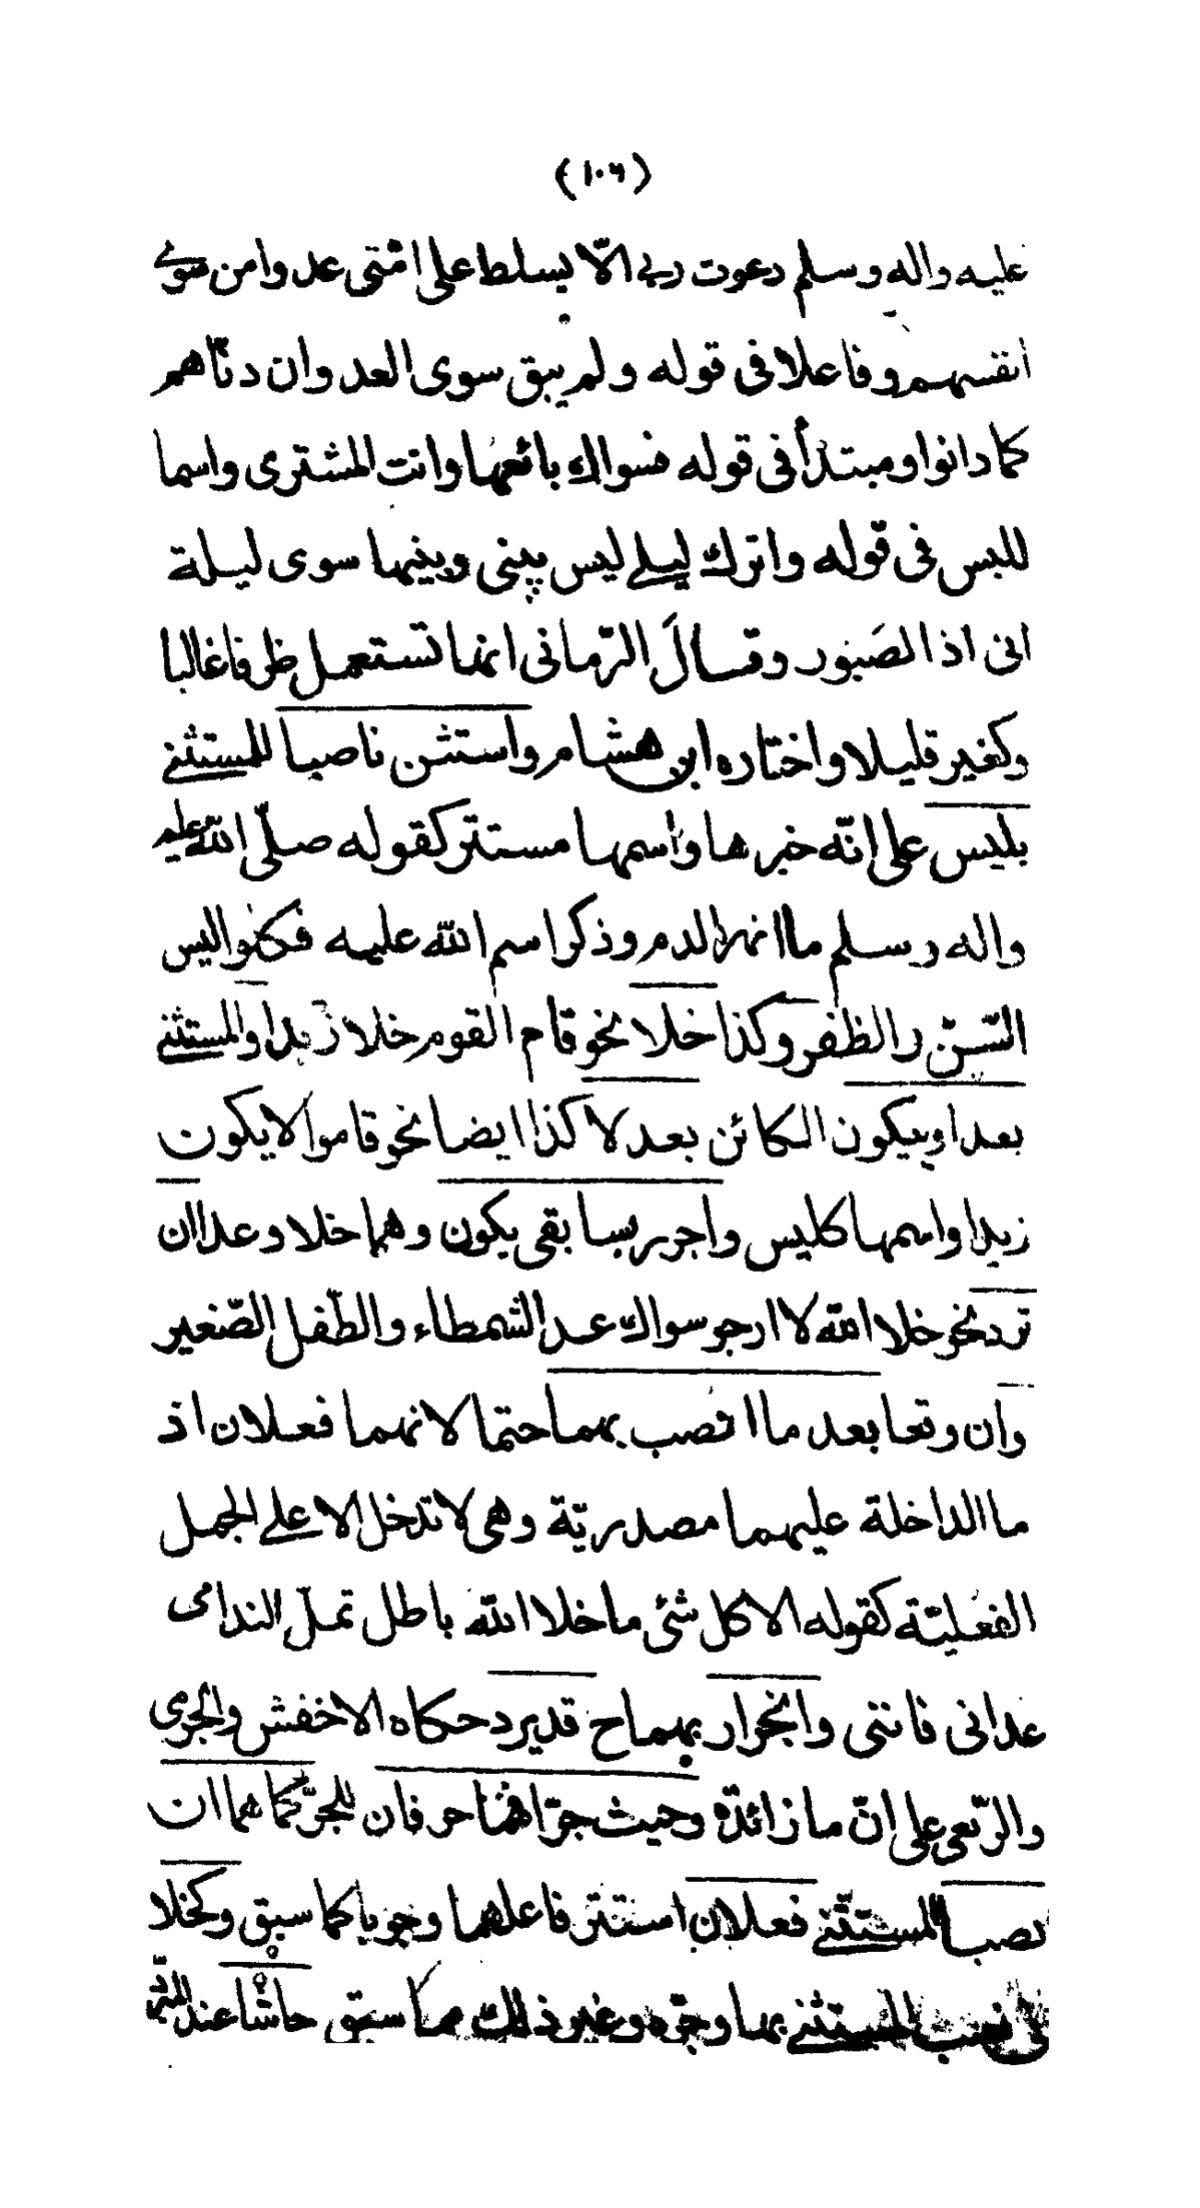 (١٠٦)
عليه واله وسلم دعوت ربي الّا يسلط على امّتي عدوا من سوى
انفسهم وفاعلا فى قوله ولم يبق سوى العدوان دنّاهم
كما دانوا ومبتدأ فى قوله فسواك بائعها وانت المشترى واسما
لليس فى قوله واترك ليلى ليس بينى وبينها سوى ليلة
انى اذا الصَبور وقالَ الرّمانى انها تستعمل ظرفا غالبا
وكغير قليلا واختاره ابن هشام واستثن ناصبا للمستثنى
بليس على انّه خبرها واسمها مستتر كقوله صلّى الله عليه
واله وسلم ما انهر الدم وذكر اسم الله عليه فكلوا ليس
السّنّ والظفر وكذا خلا نحو قام القوم خلا زيدا والمستثنى
بعدا وبيكون الكائن بعد لا كذا ايضا نحو قاموا لا يكون
زيدا واسمها كليس واجرر بسابقى يكون وهما خلا وعدا ان
ترد نحو خلا الله لا ارجو سواك عدا الشمطاء والطّفل الصّغير
وان وقعا بعد ما انصب بهما حتما لانهما فعلان اذ
ما الداخلة عليهما مصدريّة وهى لا تدخل الا على الجمل
الفعليّة كقوله الا كل شئ ما خلا الله باطل تملّ الندامى
عدانى فاننى وانجرار بهما ح قد يرد حكاه الاخفش والجرمى
والرّبعى على انّ ما زائدة وحيث جرّا فهما حرفان للجرّ كما هما ان
نصبا المستثنى فعلان استتر فاعلهما وجوبا كما سبق وكخلا
فى نصب المستثنى بها وجرّه وغير ذلك مما سبق حاشا عند